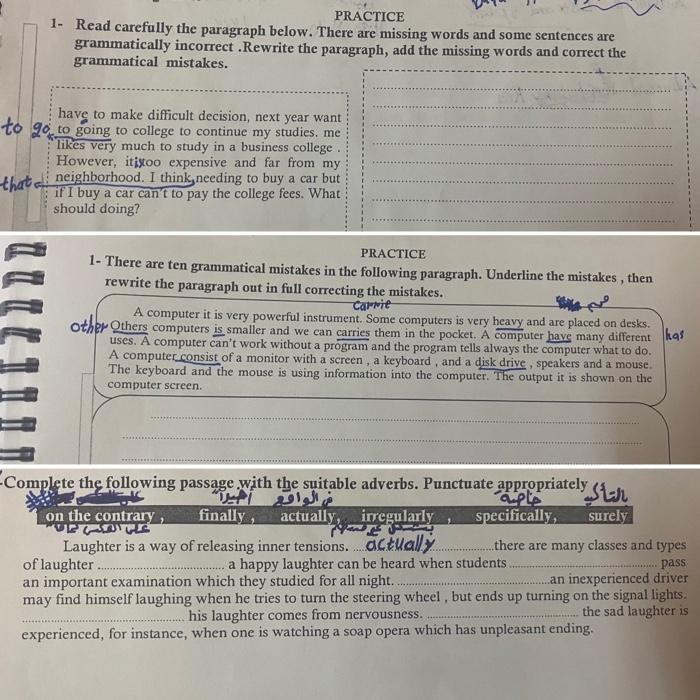 PRACTICE
1- Read carefully the paragraph below. There are missing words and some sentences are
grammatically incorrect .Rewrite the paragraph, add the missing words and correct the
grammatical mistakes.
have to make difficult decision, next year want
to go to going to college to continue my studies. me
likes very much to study in a business college .
However, itistoo expensive and far from my
that neighborhood. I think needing to buy a car but
if I buy a car can't to pay the college fees. What
should doing?
PRACTICE
1- There are ten grammatical mistakes in the following paragraph. Underline the mistakes , then
rewrite the paragraph out in full correcting the mistakes.
A computer it is very powerful instrument. Some computers is very heavy and are placed on desks.
other Others computers is smaller and we can carries them in the pocket. A computer have many different has
uses. A computer can't work without a program and the program tells always the computer what to do.
A computer consist of a monitor with a screen , a keyboard , and a disk drive , speakers and a mouse.
The keyboard and the mouse is using information into the computer. The output it is shown on the
computer screen.
-Complete the following passage with the suitable adverbs. Punctuate appropriately
أخيرا في الواقع خاصة
on the contrary , finally , actually, irregularly , specifically, surely
Laughter is a way of releasing inner tensions. ....actually................there are many classes and types
of laughter .............................. a happy laughter can be heard when students .............................. pass
an important examination which they studied for all night. ..............................an inexperienced driver
may find himself laughing when he tries to turn the steering wheel , but ends up turning on the signal lights.
.............................. his laughter comes from nervousness. .............................. the sad laughter is
experienced, for instance, when one is watching a soap opera which has unpleasant ending.